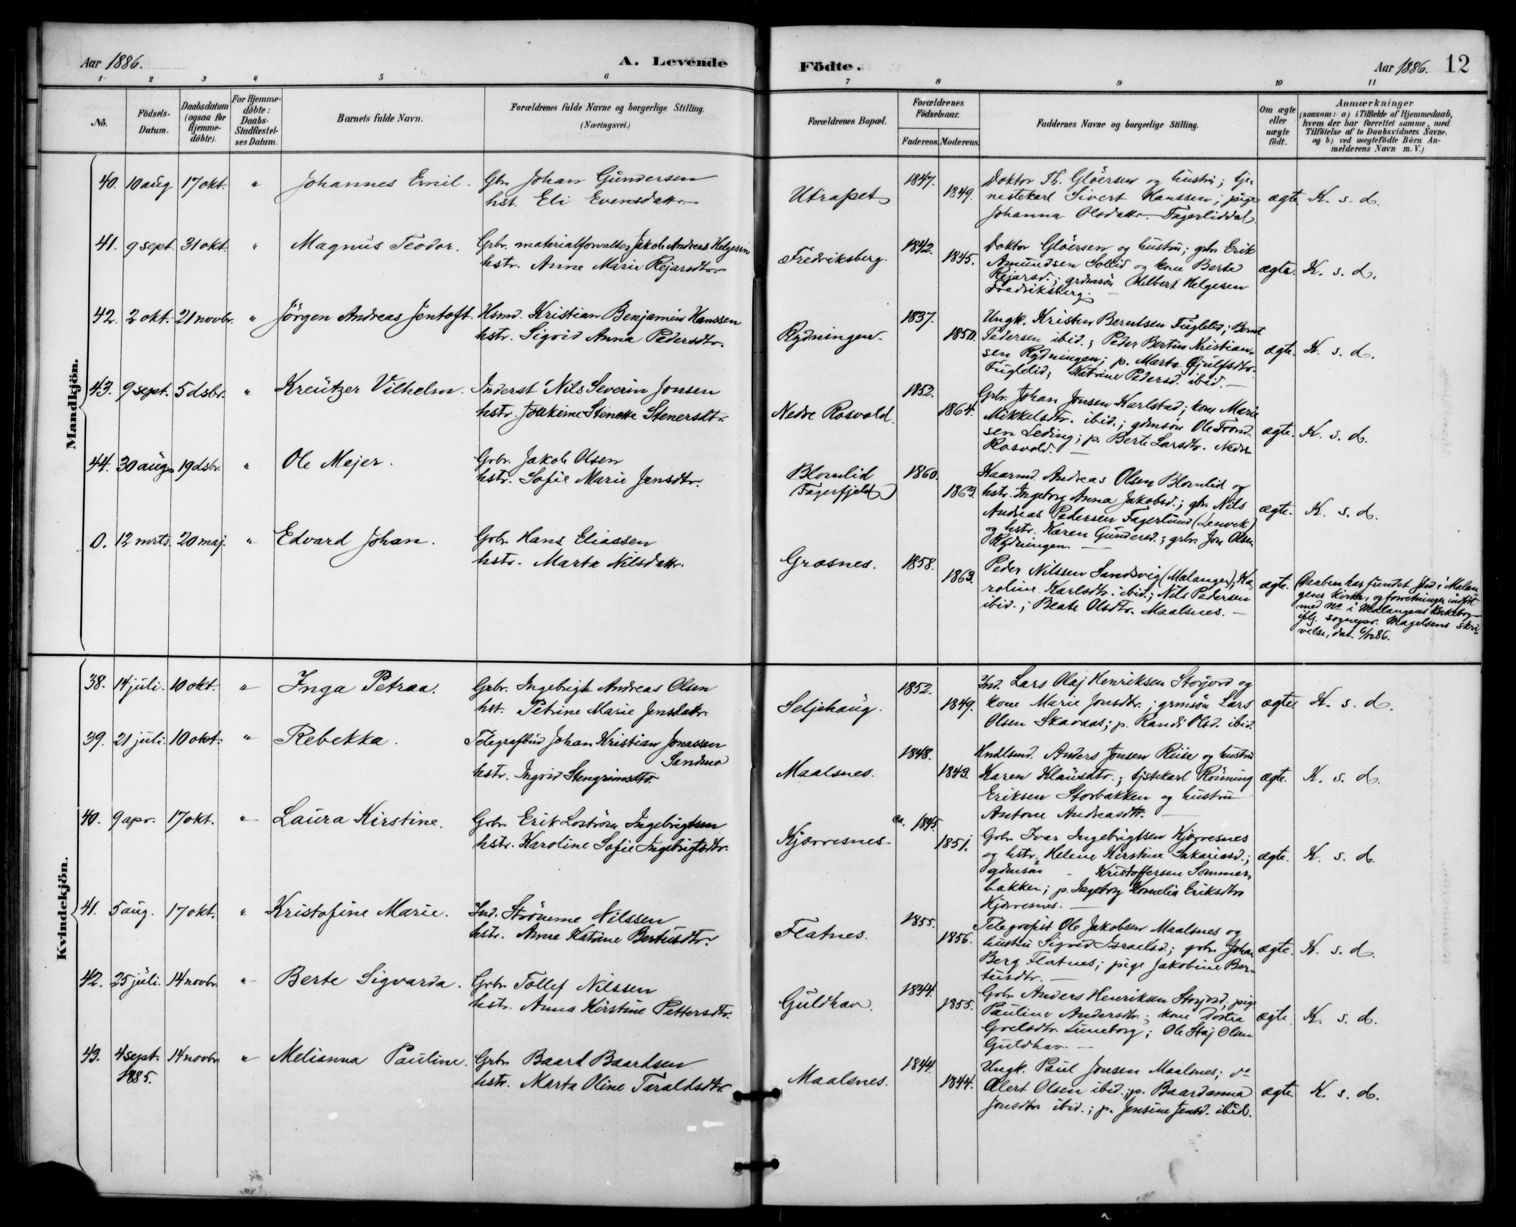 Aar 1886.
A. Levende
Födte.
Aar 1886.
12
1 2 3 4 5 6 7 8 9 10 11
No.
Födsels-Datum.
Daabsdatum (ogsaa för Hjemme-döbte).
For Hjemme-döbte: Daabs-Stadfæstel-ses Datum.
Barnets fulde Navn.
Forældrenes fulde Navne og borgerlige Stilling.
(Næringsvei.)
Forældrenes Bopæl.
Forældrenes Födselsaar.
Faderens. Moderens.
Faddernes Navne og borgerlig Stilling.
Om ægte eller uægte födt.
Anmærkninger
(saasom: a) i Tilfælde af Hjemmedaab,
hvem der har forrettet samme, med
Tilföielse af to Daabsvidners Navne.
og b) ved uægtefödte Börn An-
melderens Navn m. V.)
Mandkjön.
40. 10 aug. 17 okt. " Johannes Emil. Gbr. Johan Gundersen
hst. Eli Evensdatr
Utrapet 1847. 1849.
Doktor Th. Gløersen og hustru; tje-
nestekarl Sivert Hanssen; pige
Johanna Olsdatr Fagerliddal
ægte K. s. d.
41. 9 sept. 31 okt. " Magnus Teodor. Grbr. materialforvalter Jakob Andreas Helgesen
hstr. Anne Marie Rejersdtr
Fredriksberg. 1842. 1845.
Doktor Gløersen og hustru; gbr. Erik
Amundsen Sollid og kone Berte
Rejersd.; grdmsøn Hilbert Helgesen
Fredriksberg.
ægte. K. s. d.
42. 2 okt. 21 novbr. " Jörgen Andreas Jentoft. Hsmd. Kristian Benjamin Hanssen
hstr. Sigrid Anna Pedersdtr.
Rydningen. 1837. 1850.
Ungk. Kristen Berntsen Fuglelid; Bernt
Pedersen ibid.; Peder Bertin Kristian-
sen Rydningen; p. Marta Gjulfsdtr.
Fuglelid; Katrine Pedersd. ibid.
ægte. K. s. d.
43. 9 sept. 5 dsbr. " Kreützer Vilhelm. Inderst Nils Severin Jonsen
hstr. Joakime Stenersdtr.
Nedre Rosvold. 1852. 1864.
Grbr. Johan Jonsen Karlstad; kone Marie
Mikkelsdtr. ibid.; gdmsøn Ole Trond-
sen Leding; p. Berte Larsdtr. Nedre
Rosvold.
ægte. K. s. d.
44. 30 aug. 19 dsbr. " Ole Mejer. Grbr. Jakob Olsen
hstr. Sofie Marie Jensdtr.
Blomlid
(Fagerfjeld) 1860. 1863.
Andreas Olsen Blomlid og
hstr. Ingeborg Anna Jakobsd.; gbr. Nils
Andreas Pedersen Fagerlund (Lenvik)
og hstr. Karen Gundersd.; grbr. Jon Olsen
Rydningen.
ægte. K. s. d.
0. 12 mrts. 20 maj. " Edvard Johan. Grbr. Hans Eliassen
hstr. Marta Nilsdatr.
Grasnes. 1858. 1863.
Peder Nilssen Sandsvig (Malangen); Ka-
roline Karlsdtr. ibid.; Nils Pedersen
ibid.; Beate Olsdtr. Maalsnes.
ægte. Daaben har fundet sted i Malan-
gens kirke, og forretningen indført
med No i Malangens kirkebog
iflg. sognepr. Magelsens skri-
velse, dat. 86.
Kvindekjön.
38. 14 juli. 10 okt. " Inga Petrea. Grbr. Ingebrigt Andreas Olsen
hst. Petrine Marie Jensdatr.
Seljehaug. 1852. 1849.
Ind. Lars Olaj Henriksen Storjord og
kone Marie Jonsdtr.; grmsøn Lars
Olsen Skavaas; p. Randi Olsd. ibid.
ægte K. s. d.
39. 21 juli. 10 okt. " Rebekka. Telegrafbud Johan Kristian Jonassen
Sandmo
hstr. Ingrid Stengrimsdtr
Maalsnes. 1848. 1843.
Hndlsmd. Anders Jonsen Riise og hustru
Karen Klausdtr.; tjstekarl Rönning
Eriksen Storbakken og hustru
Antone Andreasdtr.
ægte. K. s. d.
40. 9 apr. 17 okt. " Laura Kirstine. Grbr. Erik Ingebrigtsen
hstr. Karoline Sofie Ingebrigtsdtr.
Kjærresnes. ca. 1845. 1851.
Grbr. Iver Ingebrigtsen Kjærresnes
og hstr. Helene Kirstine Sakariasd.;
gdmsøn – Kristoffersen Sommer-
bakken; p. Ingeborg Kornelia Eriksdtr
Kjærresnes.
ægte. K. s. d.
41. 5 aug. 17 okt. " Kristofine Marie. Ind. Strömme Nilssen
hstr. Anne Katrine Bertusdtr.
Flatnes. 1855. 1856.
Telegrafist Ole Jakobsen Maalsnes og
hustru Sigrid Israelsd.; grbr. Johan
Berg Flatnes; pige Jakobine Ber-
tusdtr.
ægte. K. s. d.
42. 25 juli. 14 novbr. " Berte Sigvarda. Grbr. Tollef Nilssen
hstr. Anna Kirstine Pettersdtr.
Guldhav. 1844. 1855.
Grbr. Anders Henriksen Storjord, pige
Pauline Andersdtr; kone Dortea
Grelsdtr. Luneborg; Ole Olsen
Guldhav.
ægte. K. s. d.
43. 4 sept. 1885. 14 novbr. " Melianna Pauline. Grbr. Baard Baardsen
hstr. Marta Oline Taraldsdtr
Maalsnes. 1844. 1844.
Ungk. Paul Jonsen Maalsnes; do
Olert Olsen ibid.; p. Baardanna
Jonsdtr ibid.; p. Jensine Jensd. ibid.
ægte. K. s. d.